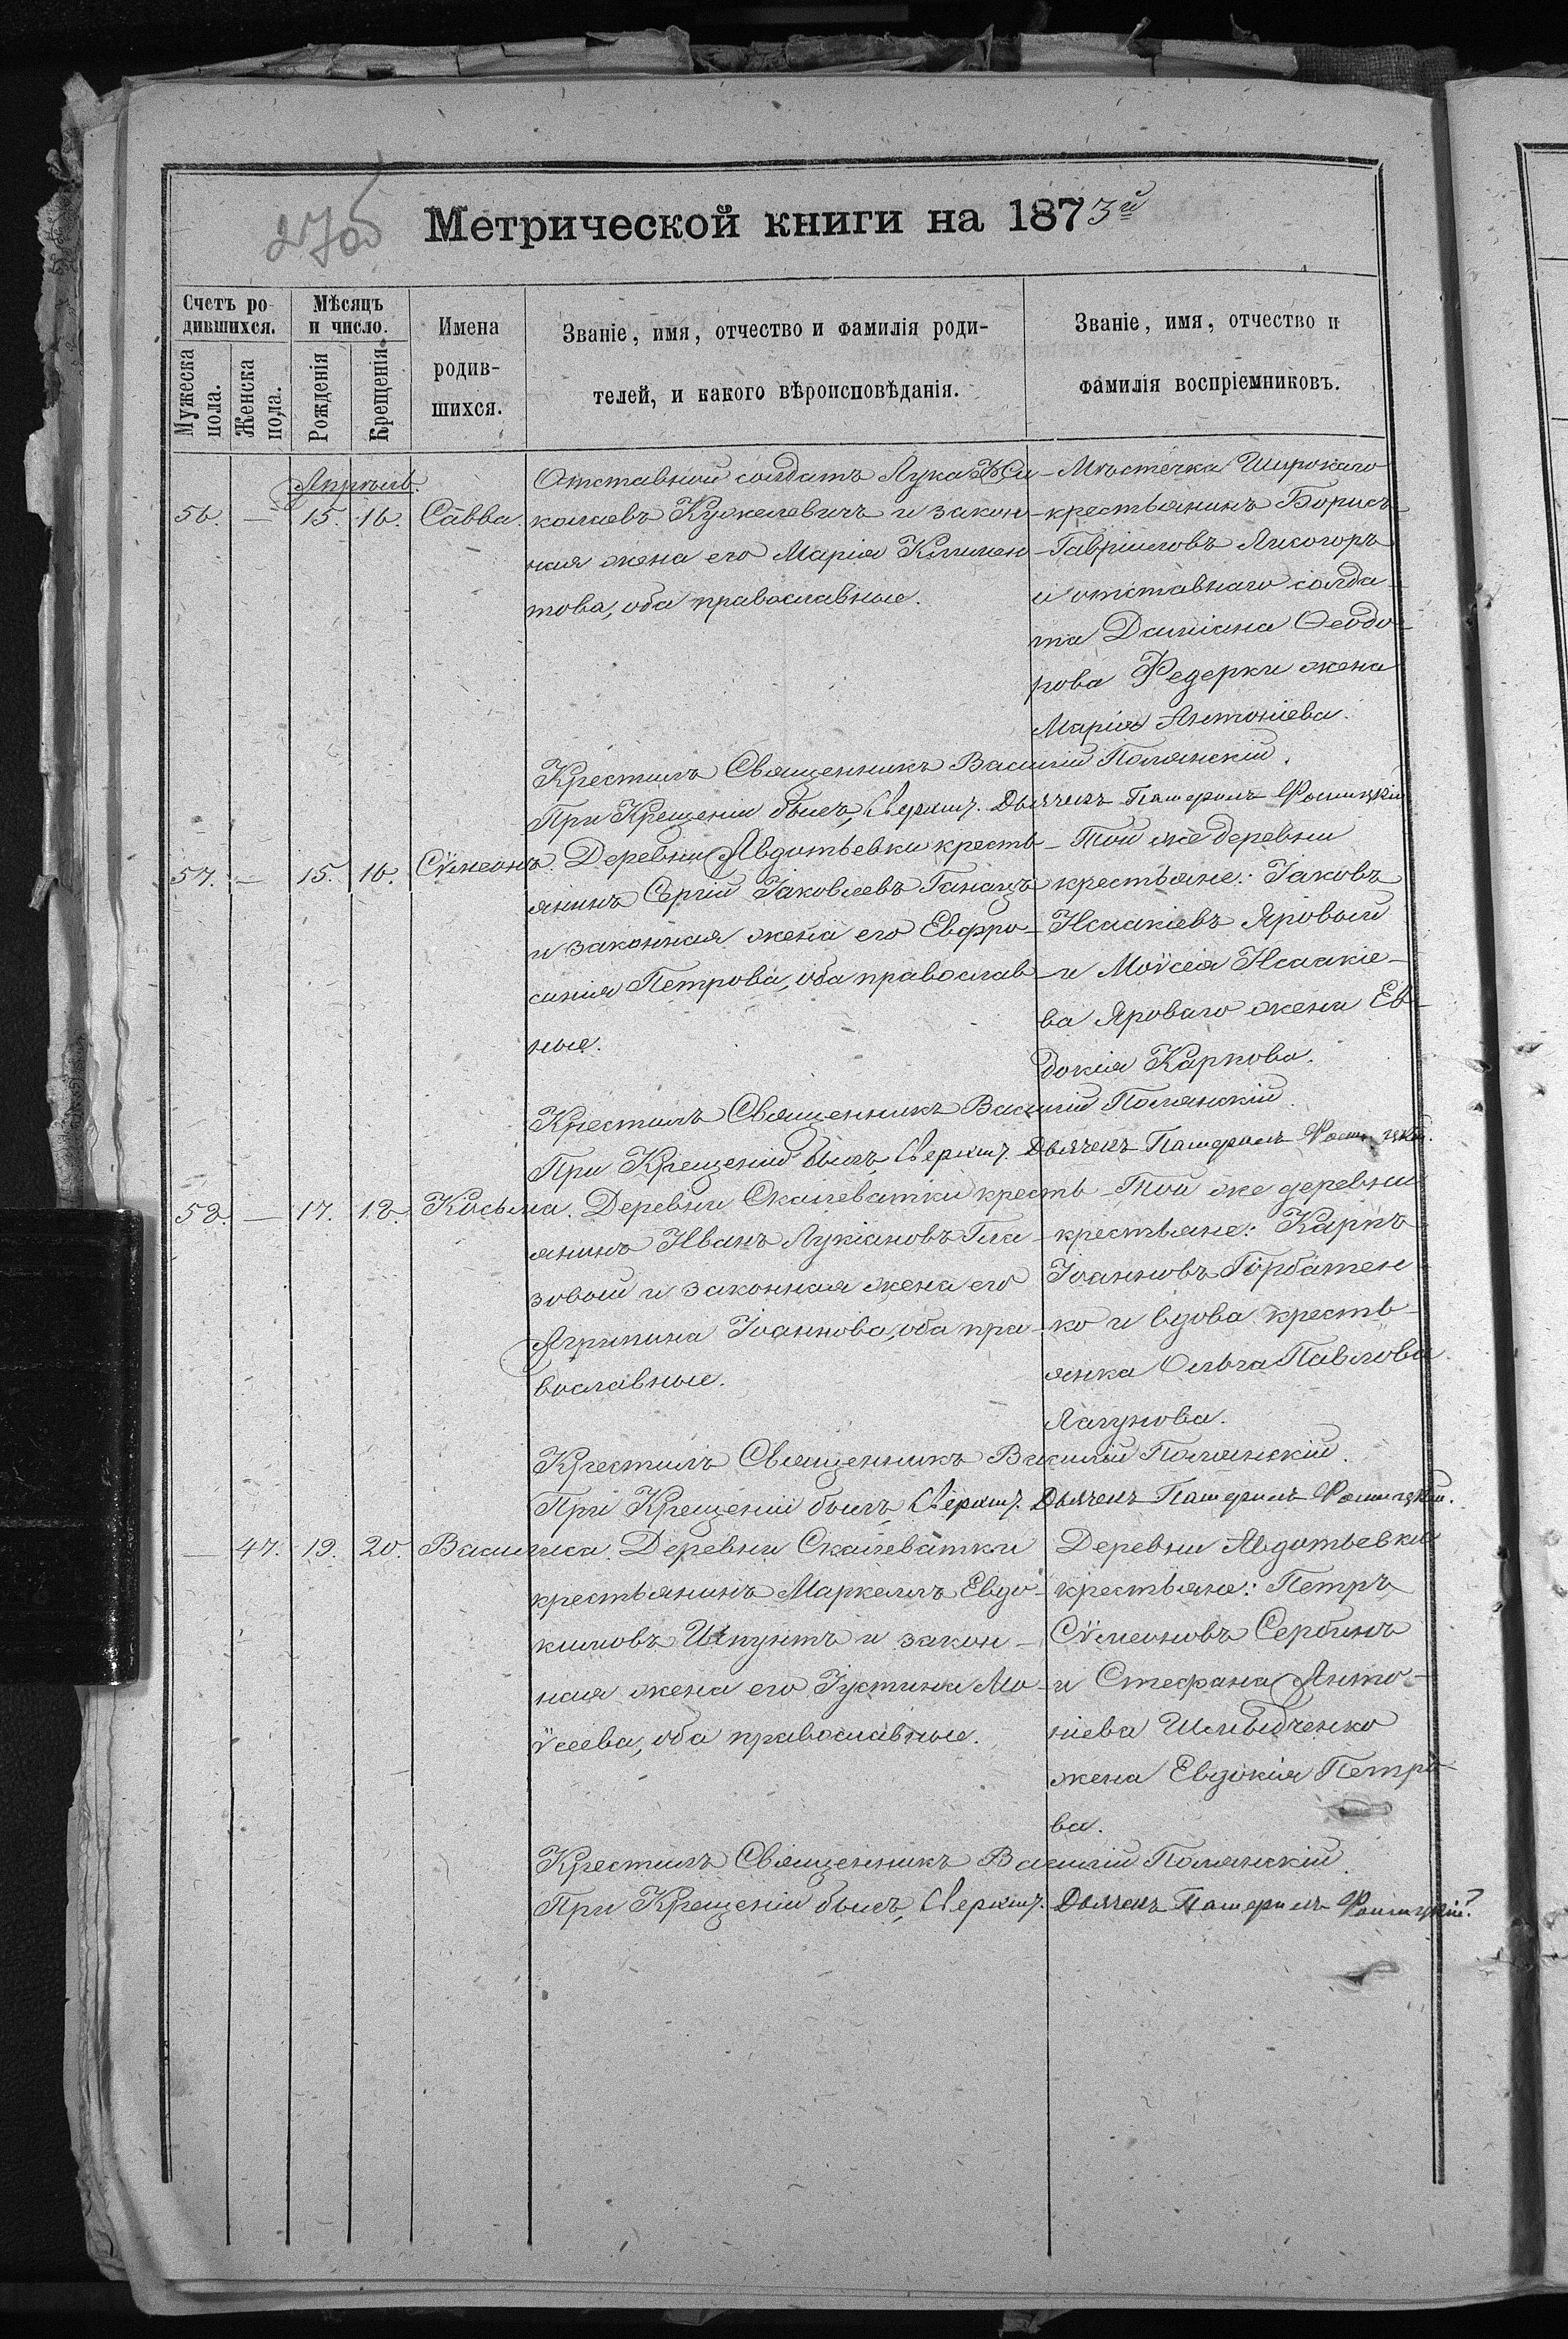 270б
Метрической книги на 1873й
Счетъ ро-
дившихся.
Мужеска
пола.
Женска
пола.
Мѣсяцъ
и число.
Рожденія
Крещенія
Имена
родив-
шихся.
Званіе, имя, отчество и фамилія роди-
телей, и какого вѣроисповѣданія.
Званіе, имя, отчество и
фамилія воспріемниковъ.
Апрѣль.
56. — 15. 16. Савва.
Отставной солдатъ Лука Ни-
колаевъ Кужелевичъ и закон-
ная жена его Марія Климен-
това, оба православные.
Мѣстечка Широкаго
крестьянинъ Борисъ
Гавріиловъ
и отставнаго солда-
та Даміана Ѳеодо-
рова Федерки жена
Марія Антоніева.
Крестилъ Священникъ Василій Полянскій.
При Крещеніи былъ, Сверхшт. Дьячекъ
57. — 15. 16. Сѵмеонъ.
Деревни Авдотьевки кресть-
янинъ Сергій Іаковлевъ Ганацъ
и законная жена его Евфро-
синія Петрова, оба православ-
ные.
Той же деревни
крестьяне: Іаковъ
Исаакіевъ Яровый
и Моѵсея Исаакіе-
ва Яроваго жена Ев-
докія Карпова.
Крестилъ Священникъ Василій Полянскій.
При Крещеніи былъ, Сверхшт. Дьячекъ
58. — 17. 18. Косьма.
Деревни Скалеватки кресть-
янинъ Иванъ Лукіановъ Гла-
зовой и законная жена его
Агрипина Іоаннова, оба пра-
вославные.
Той же деревни
крестьяне: Карпъ
Іоанновъ Горбатен
ко и вдова кресть-
янка Ольга Павлова
Лагунова.
Крестилъ Священникъ Василій Полянскій.
При Крещеніи былъ, Сверхшт. Дьячекъ
— 47. 19. 20. Василиса.
Деревни Скалеватки
крестьянинъ Маркеллъ Евдо-
кимовъ Шпунтъ и закон-
ная жена его Іустина Мо-
ѵсеева, оба православные.
Деревни Авдотьевки
крестьяне: Петръ
Сѵмеоновъ Сербинъ
и Стефана Анто-
ніева Шлыдченко
жена Евдокія Петро-
ва.
Крестилъ Священникъ Василій Полянскій.
При Крещеніи былъ, Сверхшт. Дьячекъ